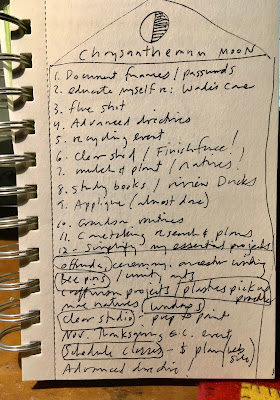 Chrysanthemum Moon
1. Document funares / passwords
2. educate myself re: Wade's Care
3. flu shot
4. Advanced directives
5. recycling event
6. Clear shed / Finish fence!
7. mulch & plant / natives
8. Study books / review Ducks
9. Applique (almost done)
10. Grandson routines
11. Cometalking research & plans
12. Simplify my essential projects
ofrenda, ceremony, ancestor writing
bee pins /
projects / plastics pick up
more natives
Clear studio - prep to paint
Nov. Thanksgiving G.C. event
Schedule Classes - $ plan / web site
Advanced directive